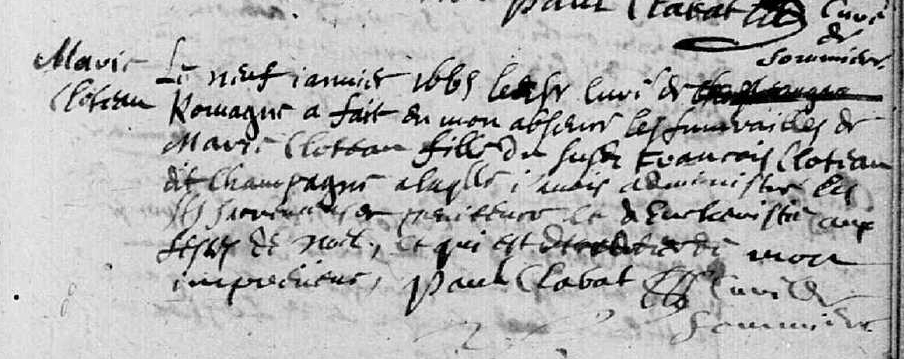 Paul Clabat curé
de
Sommieres
Marie
Cloteau
Le neuf ianvier 1665 le sr Curé de
Romagne a fait en mon absence les funerailles de
Marie Cloteau fille du susd François Cloteau
dit Champagne a laqlle i'avois administré les
sts sacremens de penitence et d'Eucharistie aux
festes de Noel, ce qui est de mon
Paul Clabat Curé de
Sommieres